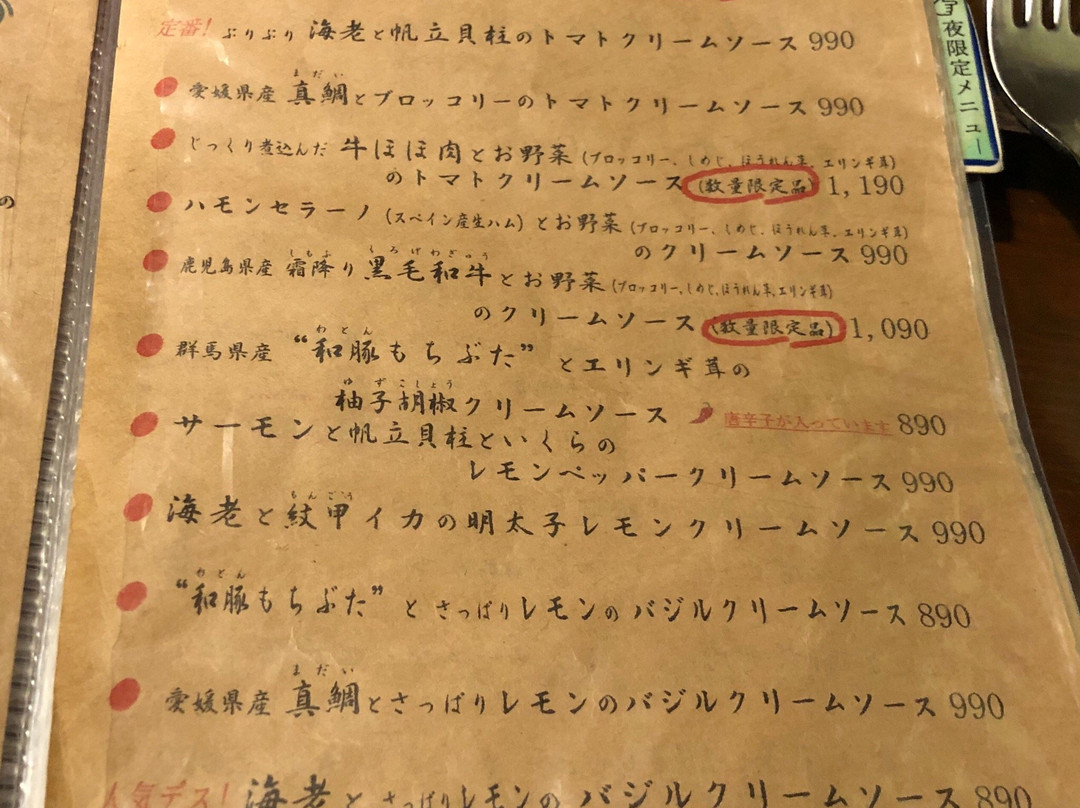 定番! ぷりぷり 海老と帆立貝柱のトマトクリームソース 990
愛媛県産 真鯛とブロッコリーのトマトクリームソース 990
まだい
じっくり煮込んだ 牛ほほ肉とお野菜 (ブロッコリー、しめじ、ほうれん草、エリンギ茸)
のトマトクリームソース (数量限定品) 1,190
ハモンセラーノ (スペイン産生ハム) とお野菜 (ブロッコリー、しめじ、ほうれん草、エリンギ茸)
のクリームソース 990
しもふ くろげわぎゅう
鹿児島県産 霜降り黒毛和牛とお野菜 (ブロッコリー、しめじ、ほうれん草、エリンギ茸)
のクリームソース (数量限定品) 1,090
わとん
群馬県産 “和豚もちぶた” とエリンギ茸の
ゆずこしょう
柚子胡椒クリームソース 唐辛子が入っています 890
サーモンと帆立貝柱といくらの
レモンペッパークリームソース 990
もんごう
海老と紋甲イカの明太子レモンクリームソース 990
わとん
“和豚もちぶた” と さっぱりレモンのバジルクリームソース 890
まだい
愛媛県産 真鯛とさっぱりレモンのバジルクリームソース 990
人気デス! 海老と さっぱりレモンの バジルクリームソース 890
夜限定メニュー
の